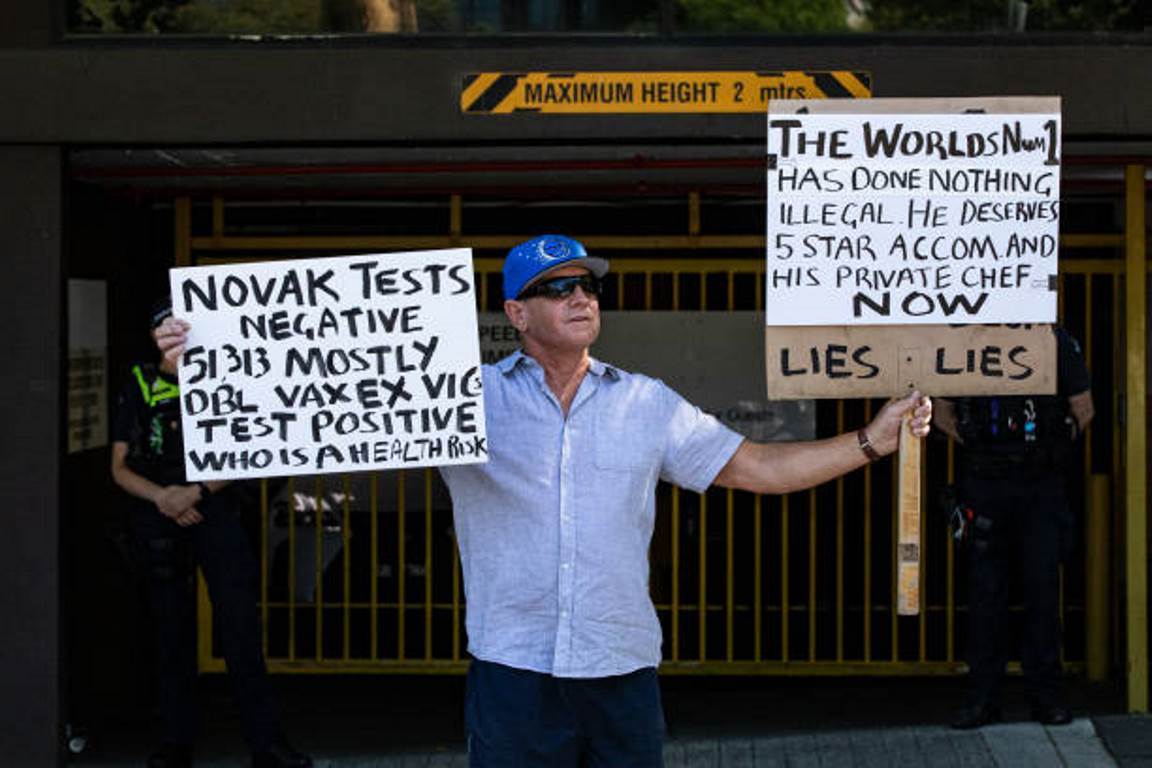 MAXIMUM HEIGHT 2 mtrs
NOVAK TESTS
NEGATIVE
51313 MOSTLY
DBL VAXEX VIC
TEST POSITIVE
WHO IS A HEALTH RISK
THE WORLDS Num 1
HAS DONE NOTHING
ILLEGAL. HE DESERVES
5 STAR ACCOM. AND
HIS PRIVATE CHEF
NOW
LIES LIES